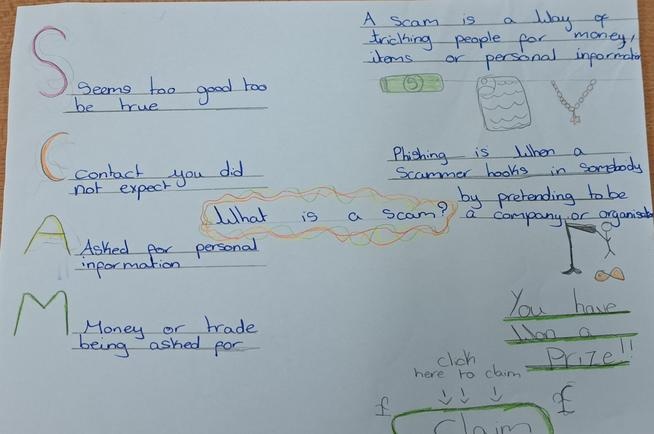 S
Seems too good too
be true
C
Contact you did
not expect
A
Asked for personal
information
M
Money or trade
being asked for
What is a scam?
A Scam is a Way of
tricking people for money,
items or personal informatio
Phishing is When a
Scammer hooks in Somebody
by pretending to be
a company or organisat
You have
Won a
Prize!!
click
here to claim
£ £
Claim